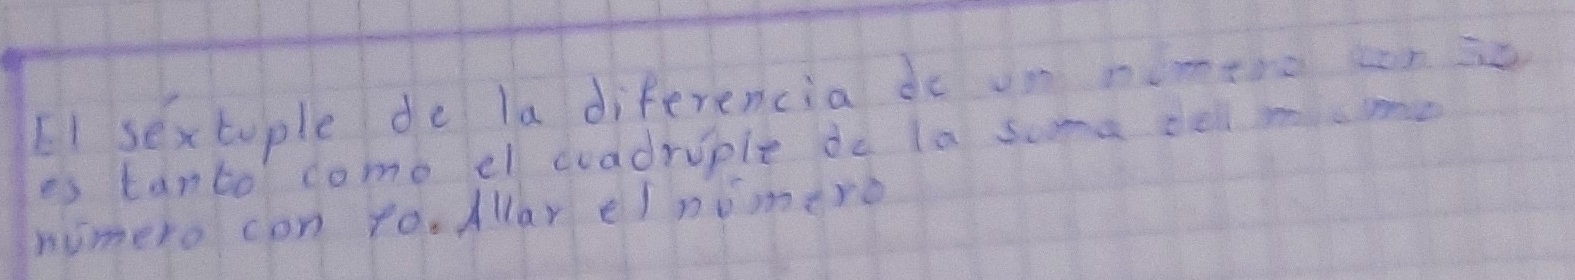 El séxtuple de la diferencia de un número con
es tanto como el cuadrúple de la suma del mismo
número con 10. Allar el número